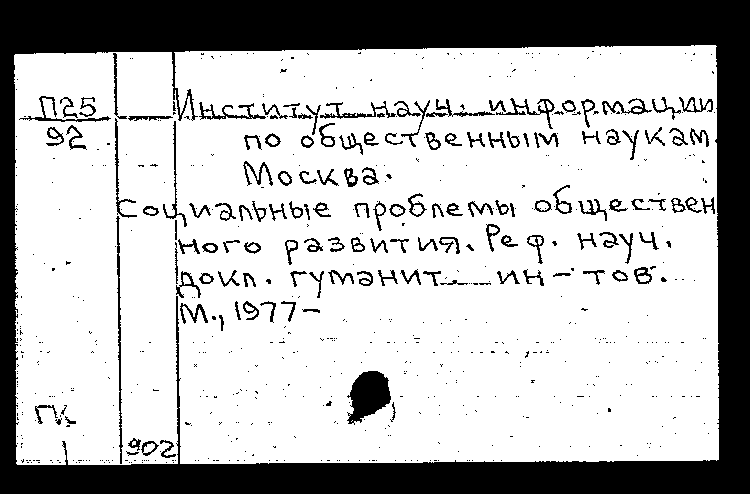 П25
92
Институт науч. информации
по общественным наукам.
Москва.
Социальные проблемы обществен
ного развития. Реф. науч.
докл. гуманит. ин-тов.
М., 1977-
ГК
902